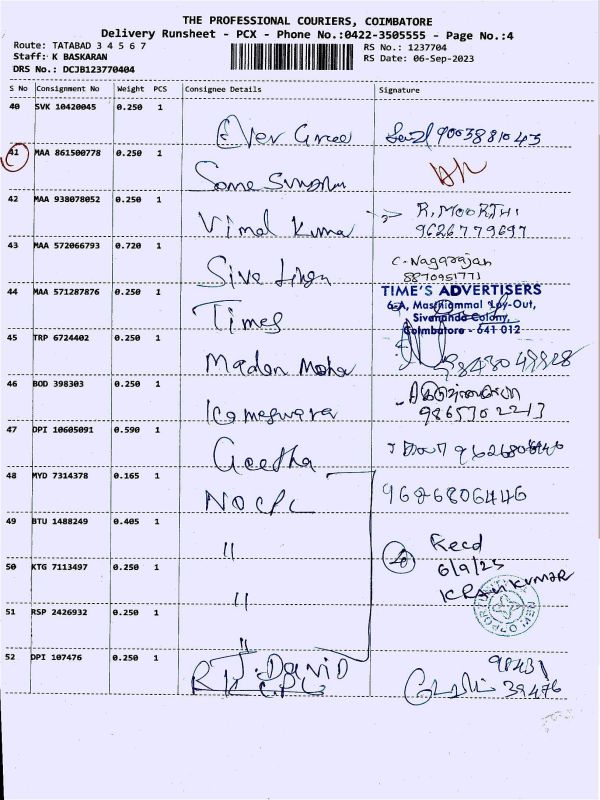 THE PROFESSIONAL COURIERS, COIMBATORE
Delivery Runsheet - PCX - Phone No.:0422-3505555 - Page No.:4
Route: TATABAD 3 4 5 6 7
RS No.: 1237704
Staff: K BASKARAN
RS Date: 06-Sep-2023
DRS No.: DCJB123770404
S No Consignment No Weight PCS Consignee Details Signature
40 SVK 10420045 0.250 1
Ever Gree 9003881043
41 MAA 861500778 0.250 1
42 MAA 938078052 0.250 1
Vimal Kuma R. MOORTHI
9626779697
43 MAA 572066793 0.720 1
Siva C. Nagarajan
8870951771
44 MAA 571287876 0.250 1
TIME'S ADVERTISERS
6-A, Lay-Out,
Sivananda Colony,
Times
Coimbatore - 641 012
45 TRP 6724402 0.250 1
Madan Moha
46 BOD 398303 0.250 1
Kameswara 9865302213
47 DPI 10605091 0.590 1
Geetha
48 MYD 7314378 0.165 1
NO CPC 9626806446
49 BTU 1488249 0.405 1
" Recd
50 KTG 7113497 0.250 1
6/9/23
"
51 RSP 2426932 0.250 1
"
52 DPI 107476 0.250 1
J. David 98431
39476